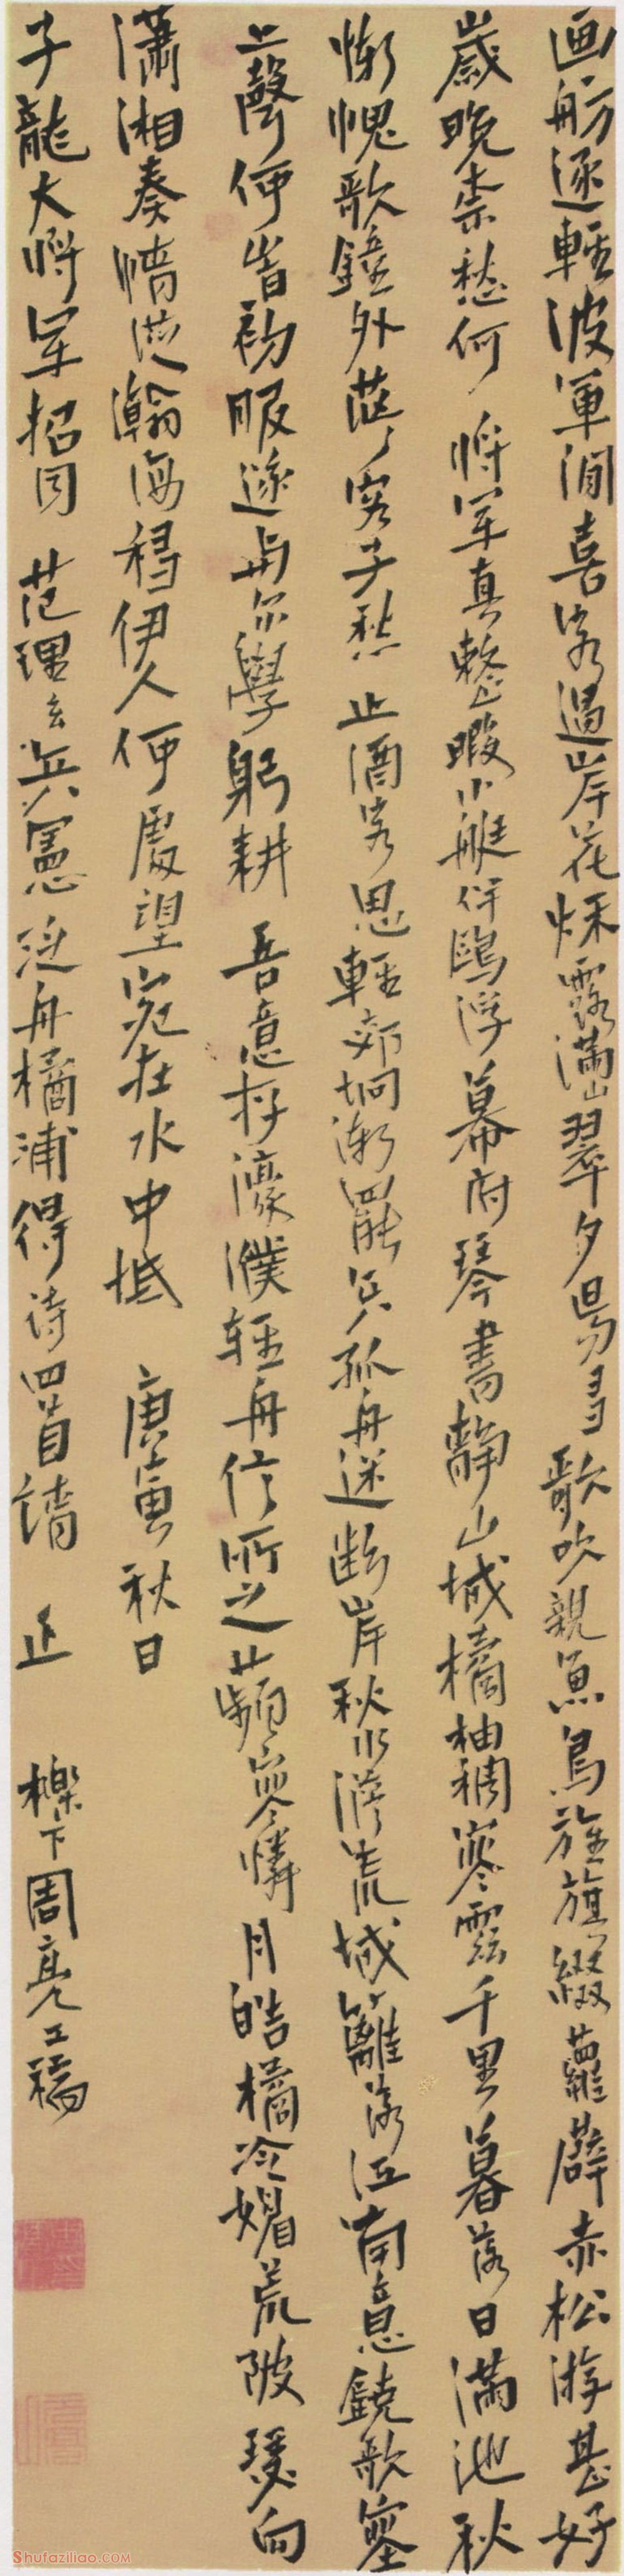 画舫逐輕波軍閒喜客過岸花烁露滿山翠夕昜多歌吹親魚鳥旌旗綴蘿薜赤松游甚好
歲晚柰愁何將軍真整暇小艇伴鷗浮幕府琴書靜山城橘柚稠寒雲千里暮落日滿池秋
慚愧歌鐘外茫々客子愁止酒客思輕郊坰漸罷兵孤舟迷斷岸秋水澹荒城籬落江南意鐃歌塞
上聲何皆初服遂与尔學躬耕吾意存濠濮輕舟信所之蘋寒憐月皓橘冷媚荒陂瑟向
瀟湘奏情從瀚海移伊人何處望宛在水中坻庚寅秋日
子龍大將軍招同范理玄兵憲泛舟橘浦得詩四首請正櫟下周亮工稿
Shufaziliao.COM